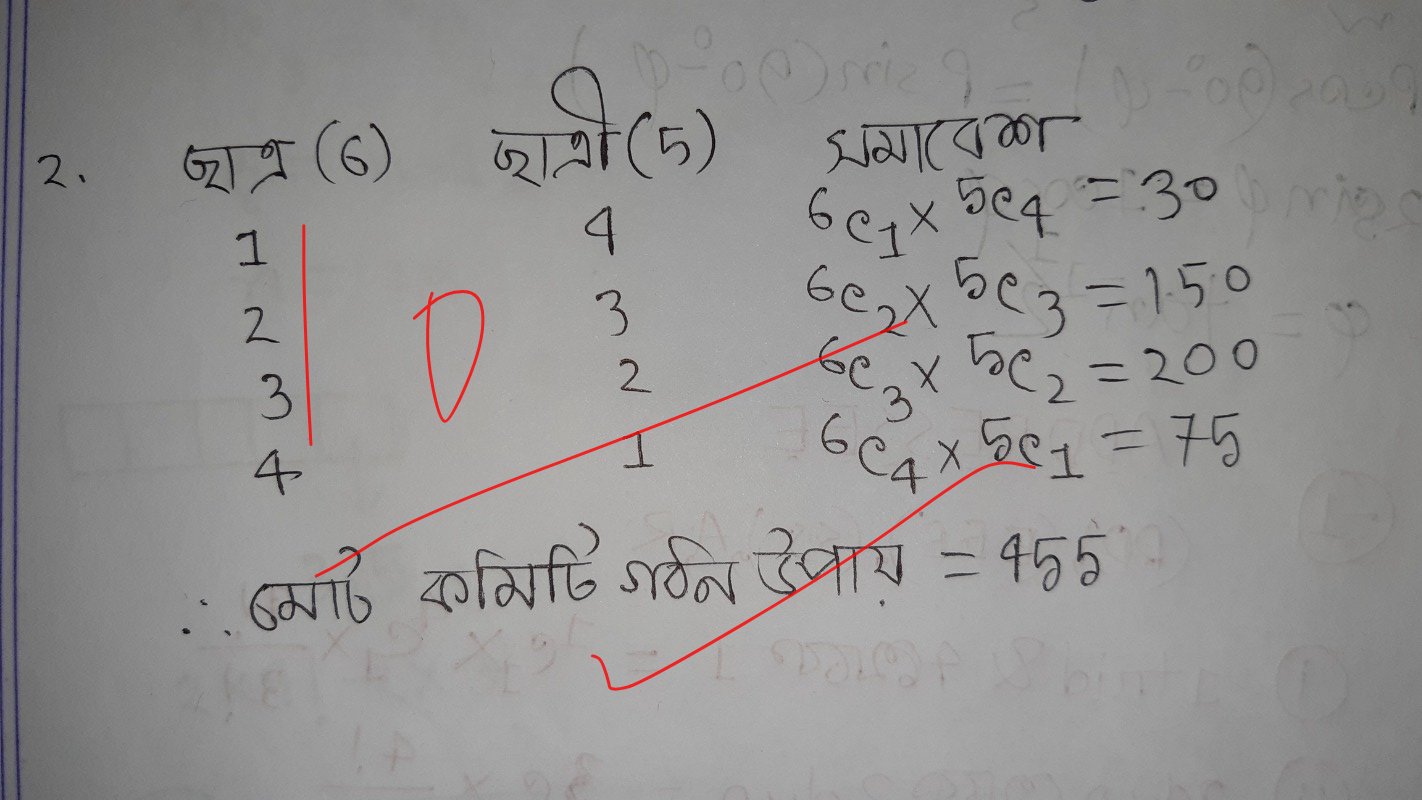 2. ছাত্র (6) ছাত্রী (5) সমাবেশ
1 4 ⁶C₁ × ⁵C₄ = 30
2 3 ⁶C₂ × ⁵C₃ = 150
3 2 ⁶C₃ × ⁵C₂ = 200
4 1 ⁶C₄ × ⁵C₁ = 75
∴ মোট কমিটি গঠন উপায় = 455